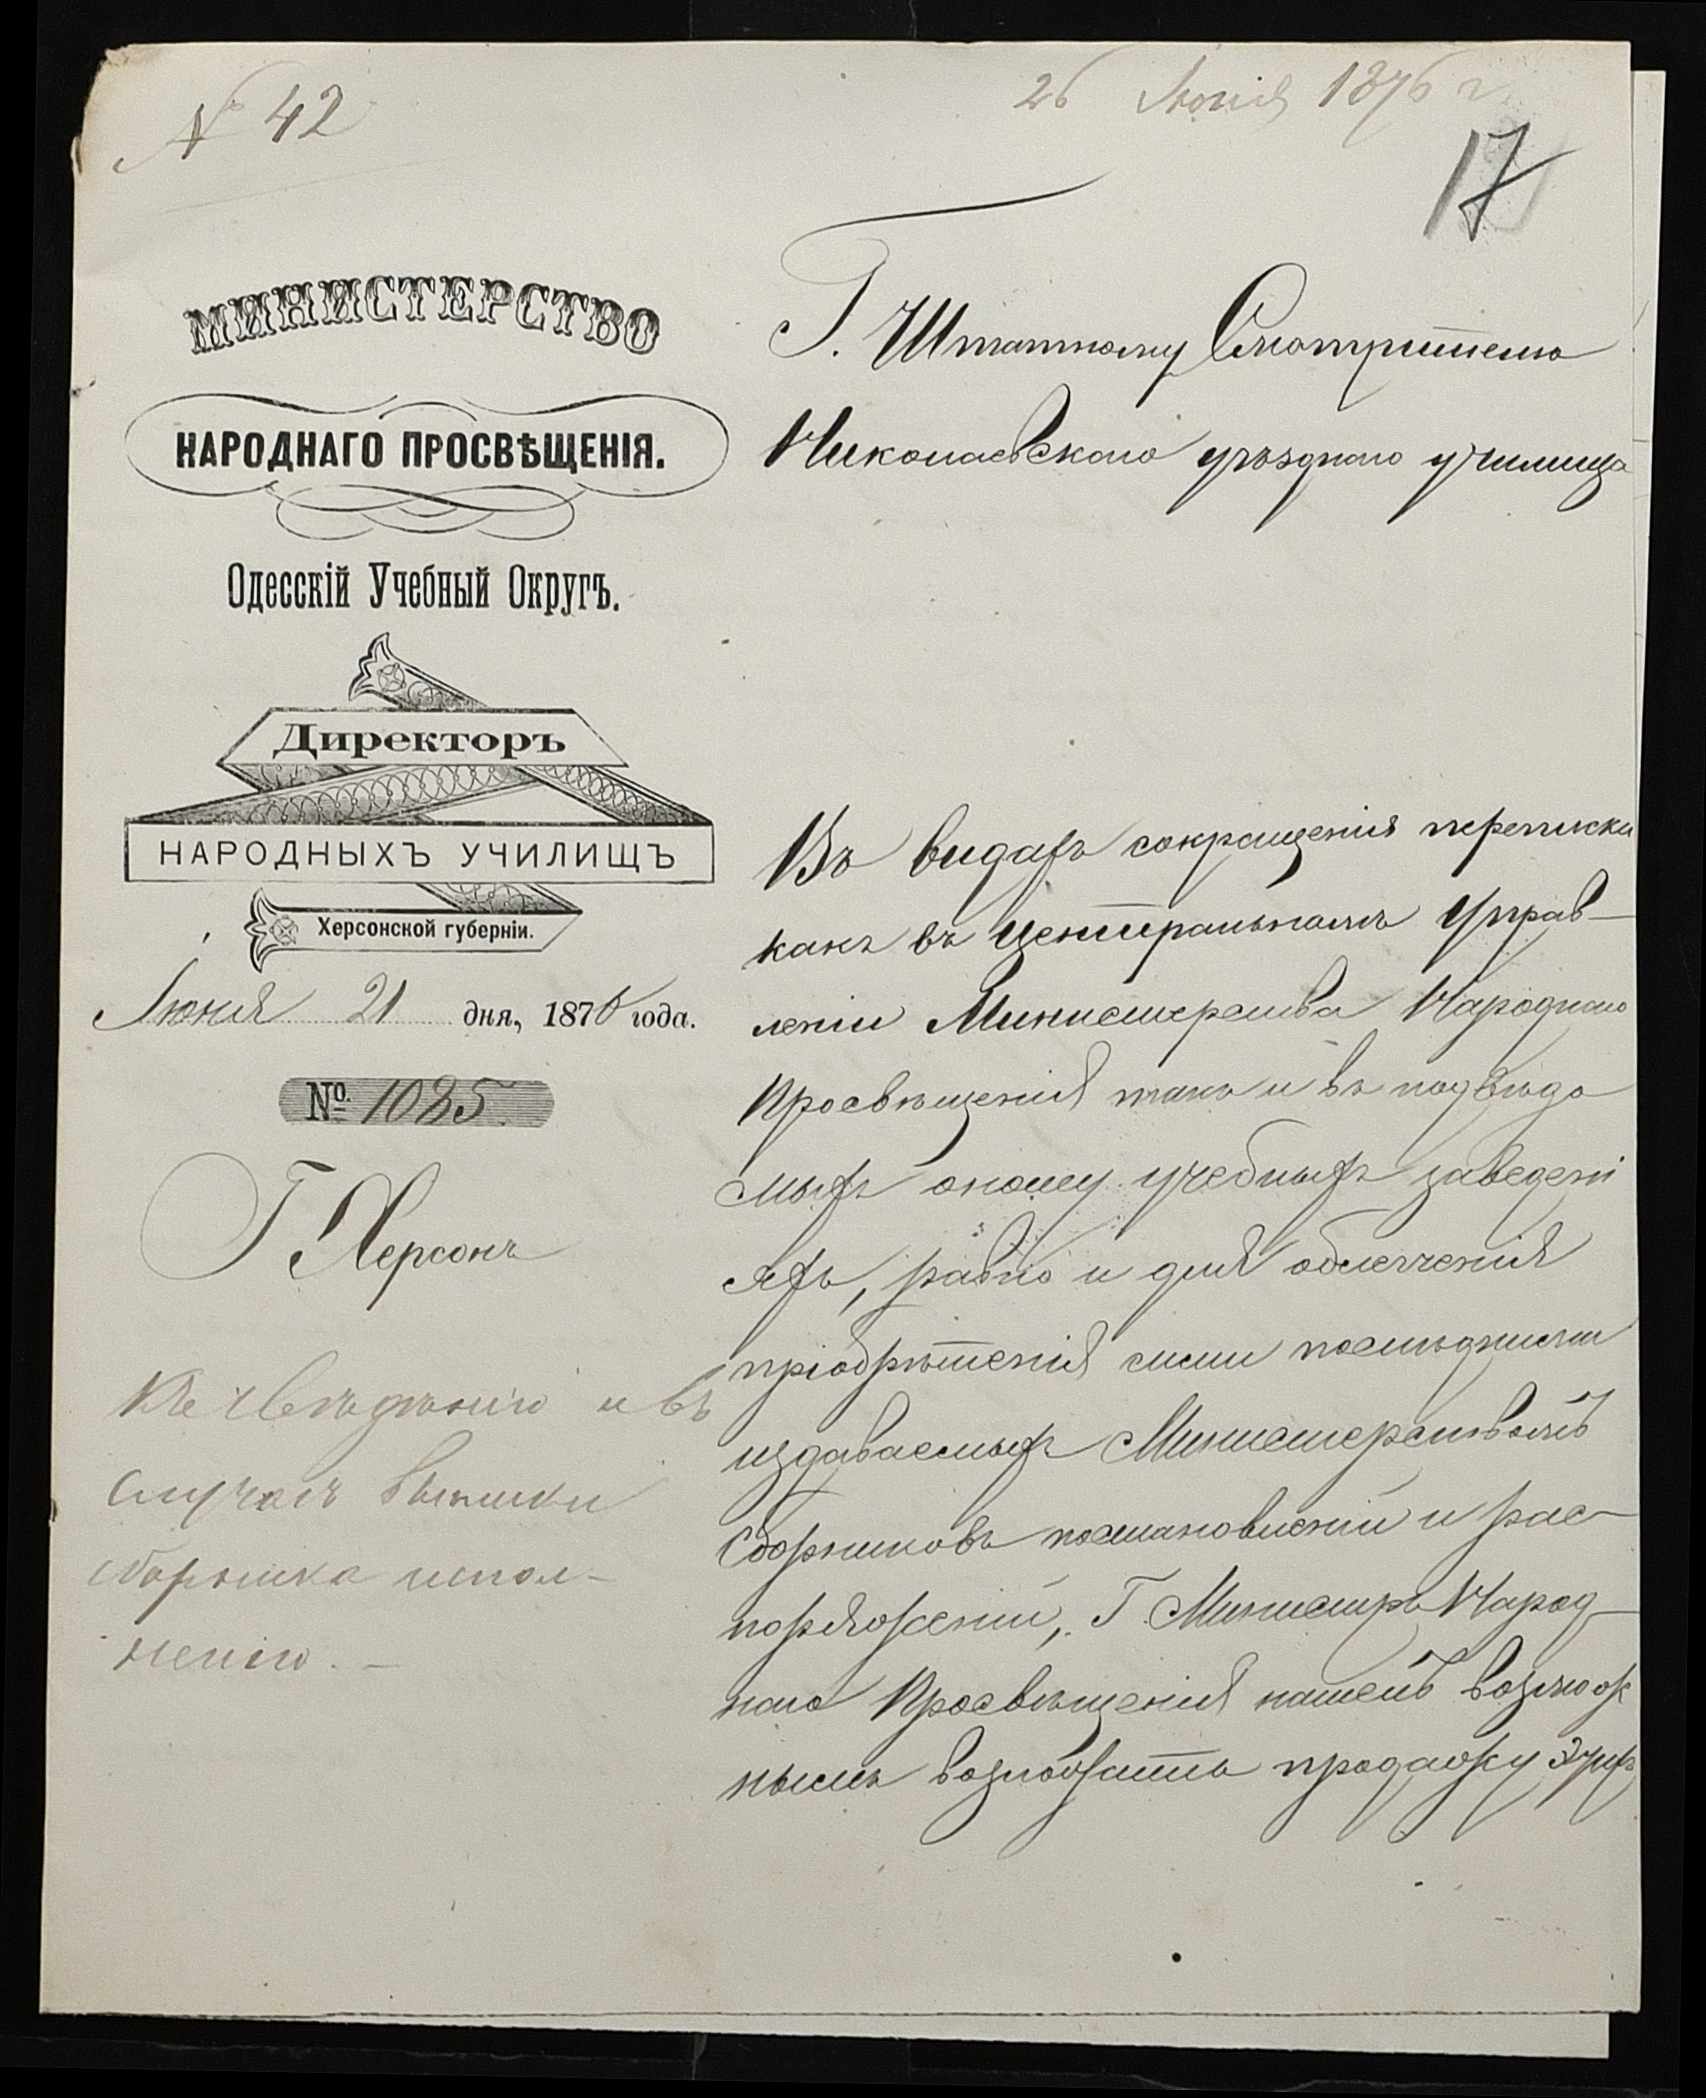 № 42
26 Июня 1876 г.
17
МИНИСТЕРСТВО
НАРОДНАГО ПРОСВѢЩЕНІЯ.
Одесскій Учебный Округъ.
Директоръ
НАРОДНЫХЪ УЧИЛИЩЪ
Херсонской губерніи.
Июня 21 дня, 1876 года.
№ 1085
Г Херсонъ
Къ свѣдѣнію и въ
случаѣ выписки
сборника испол-
ненію. —
Г. Штатному Смотрителю
Николаевскаго уѣзднаго училища
Въ видахъ сокращенія переписки
какъ въ центральномъ Управ-
леніи Министерства Народнаго
Просвѣщенія такъ и въ подвѣдо
мыхъ оному учебныхъ заведені
яхъ, равно и для облегченія
пріобрѣтенія сими послѣдними
издаваемыхъ Министерствомъ
Сборниковъ постановленій и рас-
поряженій, Г. Министръ Народ-
наго Просвѣщенія нашелъ возмож
нымъ возложить продажу этихъ